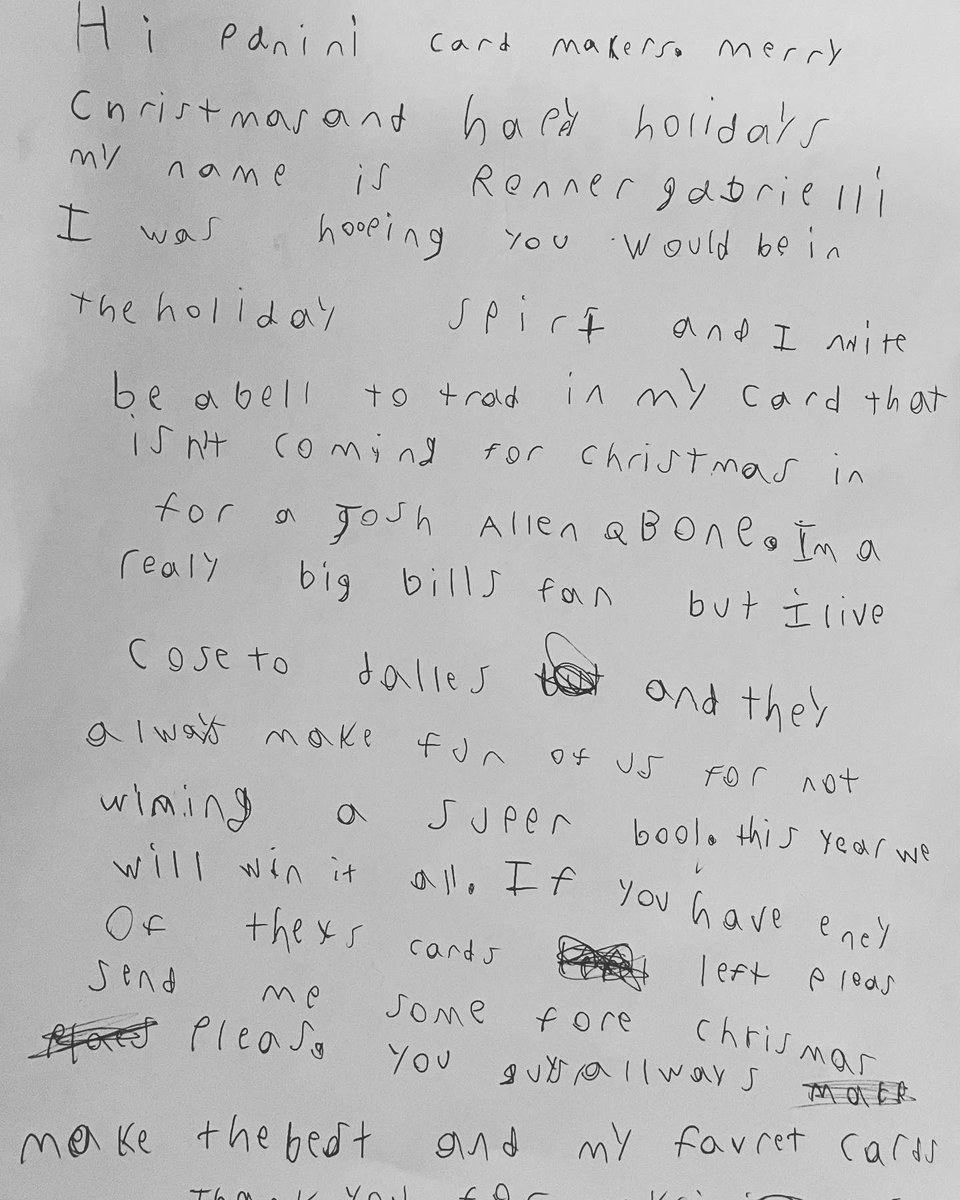 Hi panini card makers. merry
Christmas and hapy holidays
my name is Renner gabrielli
I was hooping you would be in
the holiday spirt and I mite
be abell to trad in my card that
isn't coming for christmas in
for a Josh Allen QB one. Im a
realy big bills fan but i live
cose to dalles and they
always make fun of us for not
wining a super bool. this year we
will win it all. If you have eney
Of thexs cards left pleas
send me some fore chrismas
pleas. you guys allways
make the best and my favret cards
Thank you for